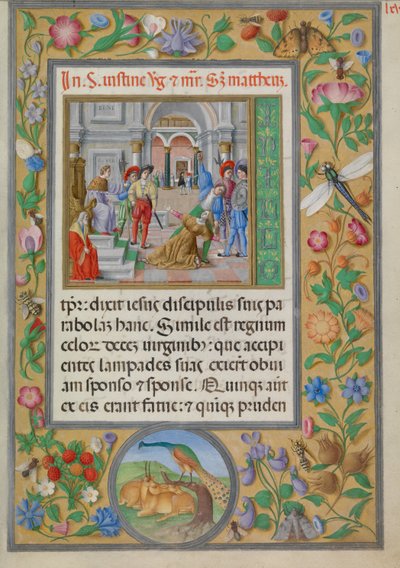 In. S. iustine vg̃ & mr̃. Sz̃ mattheuz.
tp̃r: dixit iesus discipulis suis pa
rabolaz hanc. Simile est regnum
celor decez virginibus: que accipi
entes lampades suas exiert obui
am sponso & sponse. Quinqz aũt
ex eis erant fatue: & quiqz pruden